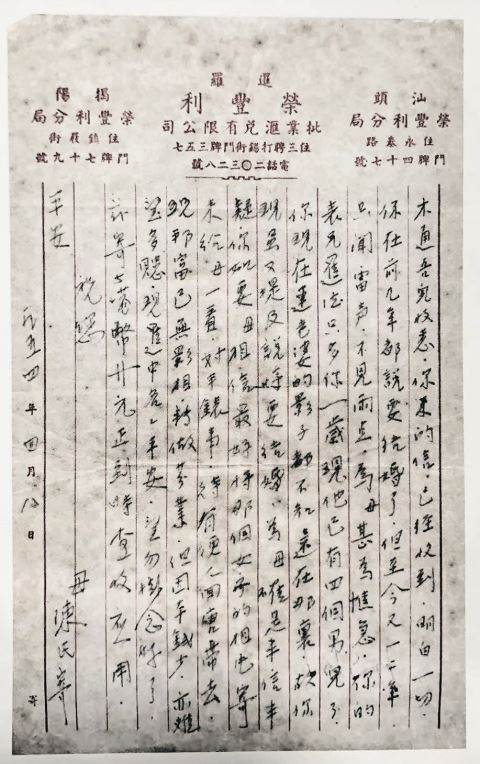 暹羅
榮豐利
批業滙兌有限公司
住三聘打錫街門牌三五七
電話二〇三二八號
汕頭
榮豐利分局
住永泰路
門牌四十七號
揭陽
榮豐利分局
門牌七十九號
木通吾兒收悉·你來的信·已經收到·明白一切·
你在前几年都說要結婚了·但至今又一二年·
只聞雷声·不見雨点·為母甚為焦急·你的
表兄暹德只多你一歲現他已有四個男兒子·
你現在連老婆的影子都不知還在那裏·故你
現虽又提及說好要結婚·為母確是半信半
疑·你如要母相信最好将那個女子的相也寄
來給母一看·对手錶事·待有便人回唐帶去·
現郭富已無影相·轉做芬業·但因本錢少·亦难
望多賜現暹中各人平安·望勿掛念好了·
茲寄上港幣廿元正到時查收应用·
祝您
平安
母陳氏寄
一九五四年四月八日